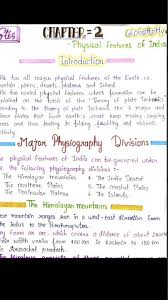 CHAPTER = 2
GEOGRAPHY
- Physical Features of India
Introduction
has all major physical features of the Earth i.e.
mountain, plains, deserts, plateaus and Island
physical features which formation can be
on the basis of the "Theory of plate Tectonic"
According to the theory of plate Tectonics, there are 7 major and
plates that form earth's crust keep moving,
leading to folding, faulting and volcanic
Major Physiography Divisions
physical features of India can be grouped under
the following physiography divisions
The Himalayan mountains
4. The Indian Desert
The Northern Plains
5. The Coastal Plains
The Peninsular Plateau
6. The Islands
The Himalayan Mountains
These mountain ranges run in a west-east direction from
the Indus to the Brahmaputra.
form an arc which covers a distance of about
width varies from 400 km in Kashmir to 150 km
in Arunachal Pradesh.